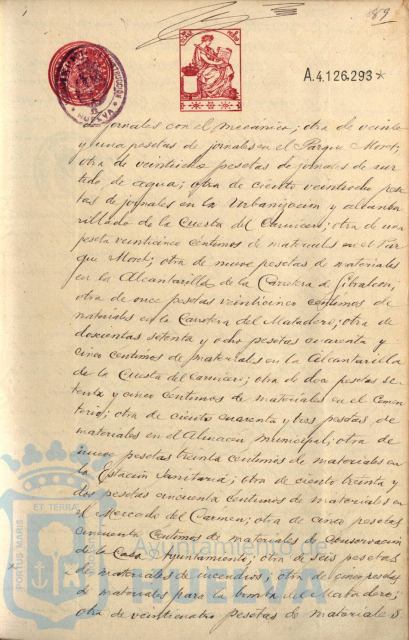 89
A.4.126.293*
HUELVA
de jornales con el mecánico; otra de veinte
y una pesetas de jornales en el Parque Moret;
otra de veintidós pesetas de jornales de sur
tido de agua; otra de ciento veintiocho pese
tas de jornales en la Urbanizacion y alcanta
rillado de la Cuesta del Carnicero; otra de una
peseta veinticinco centimos de materiales en el Par
que Moret; otra de nueve pesetas de materiales
en la Alcantarilla de la Carretera de Gibraleon;
otra de once pesetas veinticinco centimos de
materiales en la Carretera del Matadero; otra de
doscientas setenta y ocho pesetas cuarenta y
cinco centimos de materiales en la Alcantarilla
de la Cuesta del carnicero; otra de dos pesetas se
tenta y cinco centimos de materiales en el Cemen
terio; otra de ciento cuarenta y tres pesetas de
materiales en el Almacen municipal; otra de
nueve pesetas treinta centimos de materiales en
la Estacion Sanitaria; otra de ciento treinta y
dos pesetas cincuenta centimos de materiales en
el Mercado del Carmen; otra de cinco pesetas
cincuenta centimos de materiales de conservacion
de la Casa Ayuntamiento; otra de seis pesetas
de materiales de incendios; otra de cinco pesetas
de materiales para la bomba del Matadero;
otra de veinticuatro pesetas de materiales
PORTUS MARIS
ET TERRAE
Ayuntamiento de
HUELVA